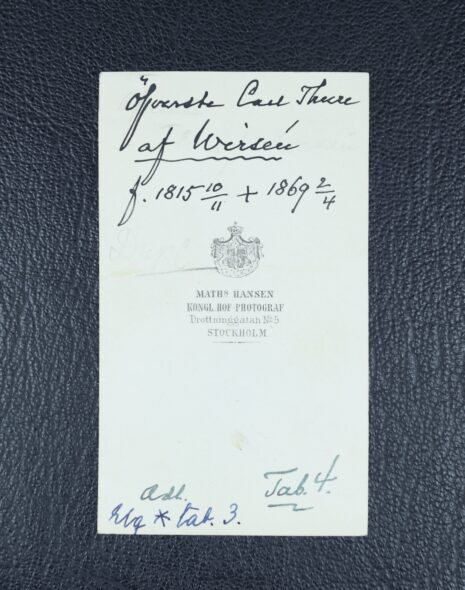 Öfverste Carl Thure
af Wirsén
f. 1815 10/11 + 1869 2/4
MATHS HANSEN
KONGL. HOF PHOTOGRAF
Drottninggatan No 5
STOCKHOLM
Adl. Tab. 4.
Elg * tab. 3.